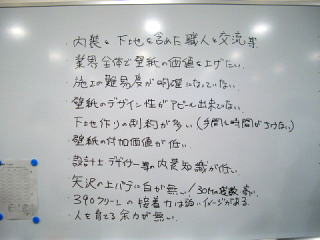 ・内装を下地を含めた職人と交流業
・業界全体で壁紙の価値を上げたい.
・施工の難易度が明確になっていない.
・壁紙のデザイン性がアピール出来てない
・下地作りの制約が多い(手間も時間がさけない)
・壁紙の付加価値が低い
・設計士デザイナー等の内装知識が低い.
・矢沢の上パテに白が無い/30Mの
・390クリーンの接着力は弱いイメージがある.
・人を育てる余力が無い.